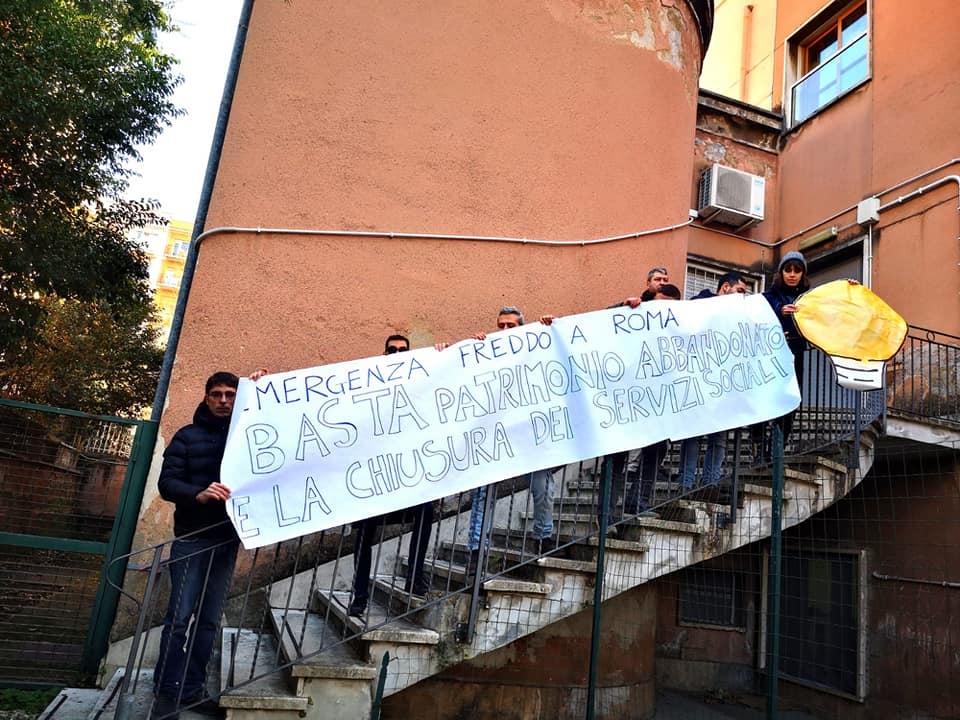 EMERGENZA FREDDO A ROMA
BASTA PATRIMONIO ABBANDONATO
E LA CHIUSURA DEI SERVIZI SOCIALI